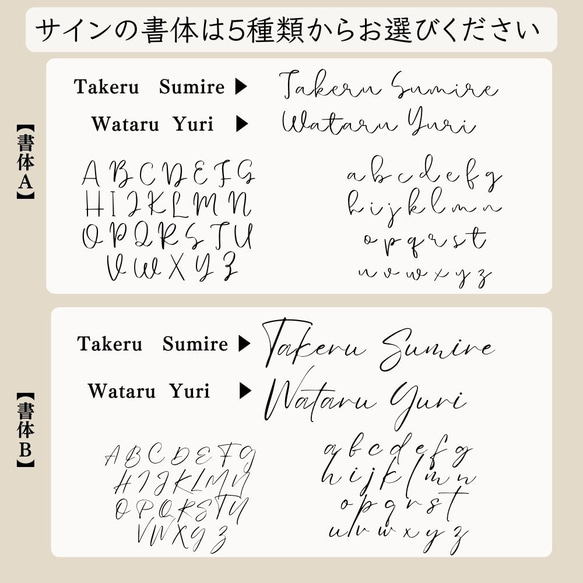 サインの書体は5種類からお選びください
【書体A】
Takeru Sumire ▶ Takeru Sumire
Wataru Yuri ▶ Wataru Yuri
A B C D E F G
H I J K L M N
O P Q R S T U
V W X Y Z
a b c d e f g
h i j k l m n
o p q r s t
u v w x y z
【書体B】
Takeru Sumire ▶ Takeru Sumire
Wataru Yuri ▶ Wataru Yuri
A B C D E F G
H I J K L M N
O P Q R S T U
V W X Y Z
a b c d e f g
h i j k l m n
o p q r s t
u v w x y z